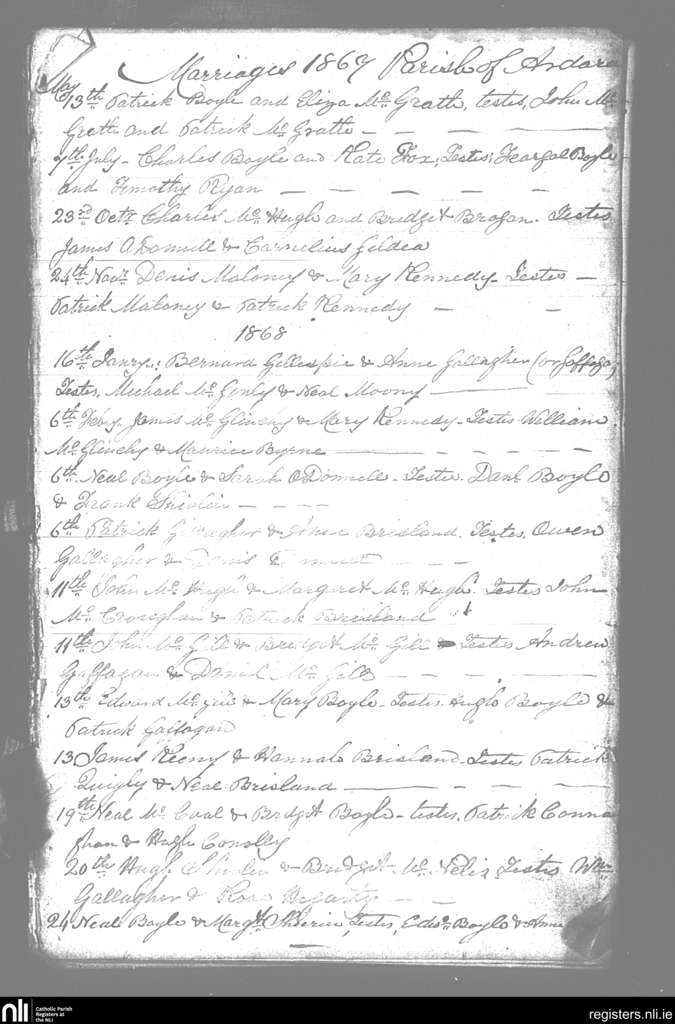 Marriages 1867 Parish of Ardara
May
13th Patrick Boyle and Eliza McGrath, testes, John Mc
Grath and Patrick McGrath
7th July - Charles Boyle and Kate Fox, Testes, Feargal Boyle
and Timothy Ryan
23rd Octr Charles McHugh and Bridget Brogan. Testes
James O'Donnell & Carnelius Gildea
24th Novr Denis Maloney & Mary Kennedy - Testes -
Patrick Maloney & Patrick Kennedy
1868
16th Janry: Bernard Gillespie & Anne Gallagher (or
Testes, Michael McGinly & Neal Moony
6th Feby. James McGlinchy & Mary Kennedy - Testes William
McGlinchy & Maurice Byrne
6th Neal Boyle & Sarah O'Donnell - Testes. Danl Boyle
& Frank
6th Patrick Gallagher & Anne Brisland. Testes, Owen
Gallagher & Denis
11th John McHugh & Margaret McHugh. Testes John
McCroughan & Patrick Brisland
11th John McGill & Bridget McGill Testes Andrew
Gaffagan & Daniel McGill
13th Edward & Mary Boyle - Testes. Hugh Boyle &
Patrick Gaffagan
13 James Keeny & Hannah Brisland - Testes Patrick
Quigly & Neal Brisland
19th Neal McCoal & Bridget Boyle - testes, Patrick Conna
ghan & Hugh Conolly
20th Hugh & Bridget McNelis Testes Wm
Gallagher & Ross
24 Neal Boyle & Margt Testes, Edwd. Boyle & Anne
nli
Catholic Parish
Registers at
the NLI
registers.nli.ie